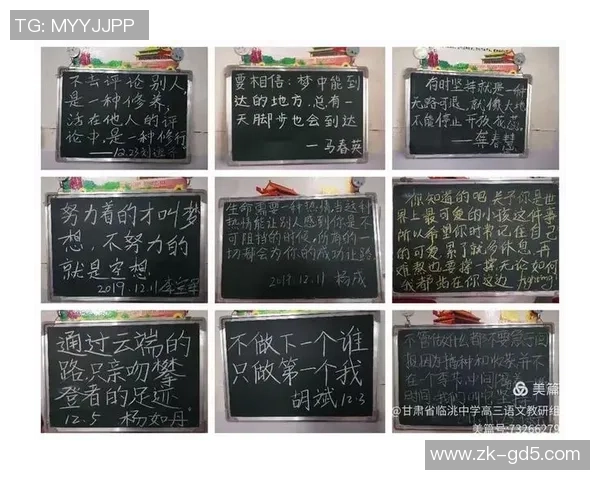 TG: MYYJJPP
不去评论别人
是一种修养,
活在他人的评
论中,是一种修行
——12.23
要相信:梦中能到
达的地方,总有一
天脚步也会到达
—马春英
有时坚持就是一种
无路可退,就像大地
不能停止开放花蕊。
努力着的才叫梦
想,不努力的
就是空想
2019.12.11
生命需要一种热情,当这种
热情能让别人感到你是不
可阻挡的时候,你前的一
切都会为你的成功让路
2019.12.11 杨成
你知道的吗 关于你是世
界上最可爱的小孩这件事
所以希望你时常记在自己
的可爱,累了就多休息,再
难熬也要撑一撑无论如何
我都站在你这边
通过云端的
路,只亲吻攀
登者的足迹
12.5 杨如丹
不做下一个谁
只做第一个我
胡斌 12.3
不管做什么都不要急于回
报,因为播种和收获,并不
在一个季节,中间
美篇
@甘肃省临洮中学高三语文教研组
美篇号:73266279
www.zk-gd5.com